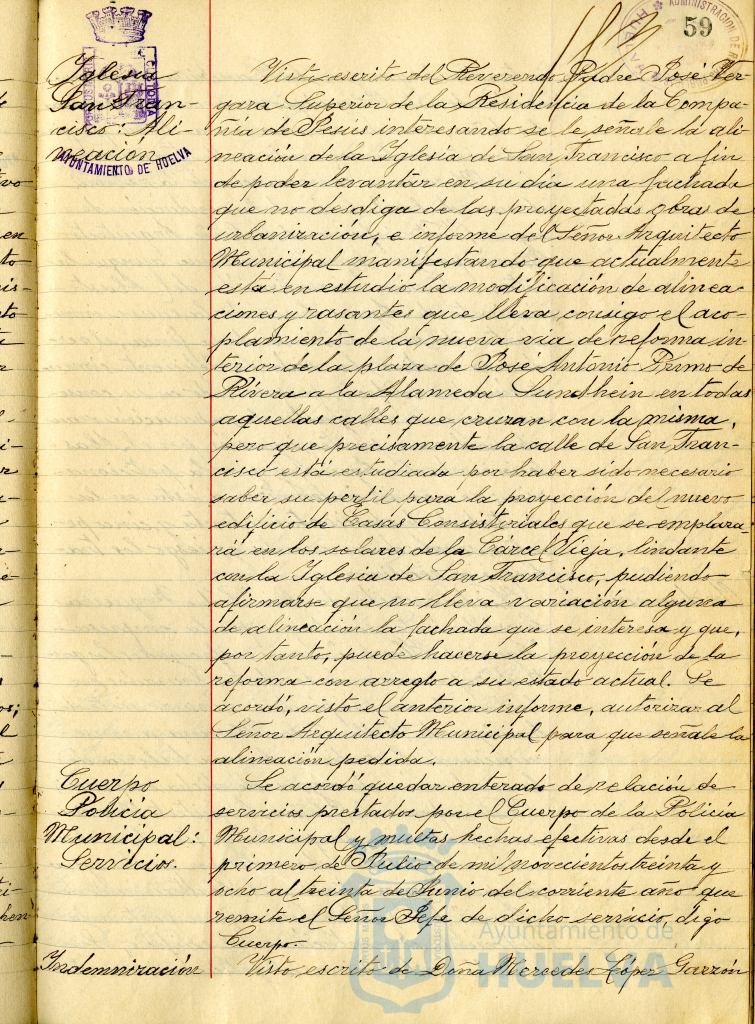 59
Iglesia
San Fran-
cisco: Ali-
neación
AYUNTAMIENTO DE HUELVA
Visto escrito del Reverendo Padre José Ver-
gara Superior de la Residencia de la Compa-
ñía de Jesús interesando se le señale la ali-
neación de la Iglesia de San Francisco a fin
de poder levantar en su día una fachada
que no desdiga de las proyectadas obras de
urbanización, e informe del Señor Arquitecto
Municipal manifestando que actualmente
está en estudio la modificación de alinea-
ciones y rasantes que lleva consigo el aco-
plamiento de la nueva via de reforma in-
terior de la plaza de José Antonio Primo de
Rivera a la Alameda Sundhein en todas
aquellas calles que cruzan con la misma,
pero que precisamente la calle de San Fran-
cisco está estudiada por haber sido necesario
saber su perfil para la proyección del nuevo
edificio de Casas Consistoriales que se emplaza-
rá en los solares de la Cárcel Vieja, lindante
con la Iglesia de San Francisco, pudiendo
afirmarse que no lleva variación alguna
de alineación la fachada que se interesa y que,
por tanto, puede hacerse la proyección de la
reforma con arreglo a su estado actual. Se
acordó, visto el anterior informe, autorizar al
Señor Arquitecto Municipal para que señale la
alineación pedida.
Cuerpo
Policía
Municipal:
Servicios.
Se acordó quedar enterado de relación de
servicios prestados por el Cuerpo de la Policía
Municipal y multas hechas efectivas desde el
primero de Julio de mil novecientos treinta y
ocho al treinta de Junio del corriente año que
remite el Señor Jefe de dicho servicio, digo
Cuerpo.-
Indemnización
Visto, escrito de Doña Mercedes López Garzón
Ayuntamiento de
HUELVA